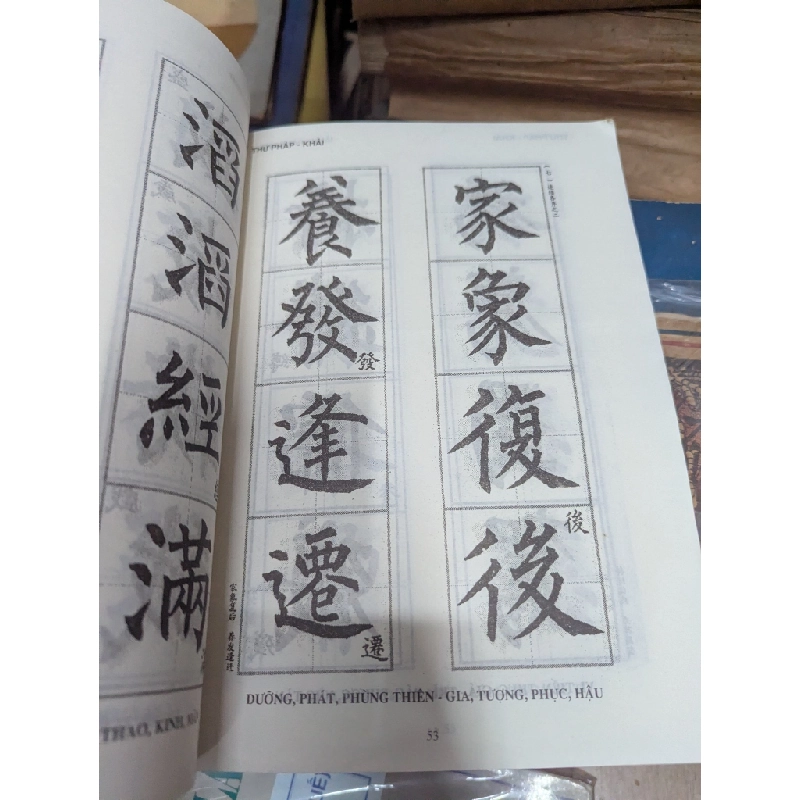 THƯ PHÁP - KHẢI
養
發
發
逢
遷
遷
家
象
復
後
後
DƯỠNG, PHÁT, PHÙNG THIÊN - GIA, TƯỢNG, PHỤC, HẬU
53
滔
滔
經
滿
THAO, KINH,